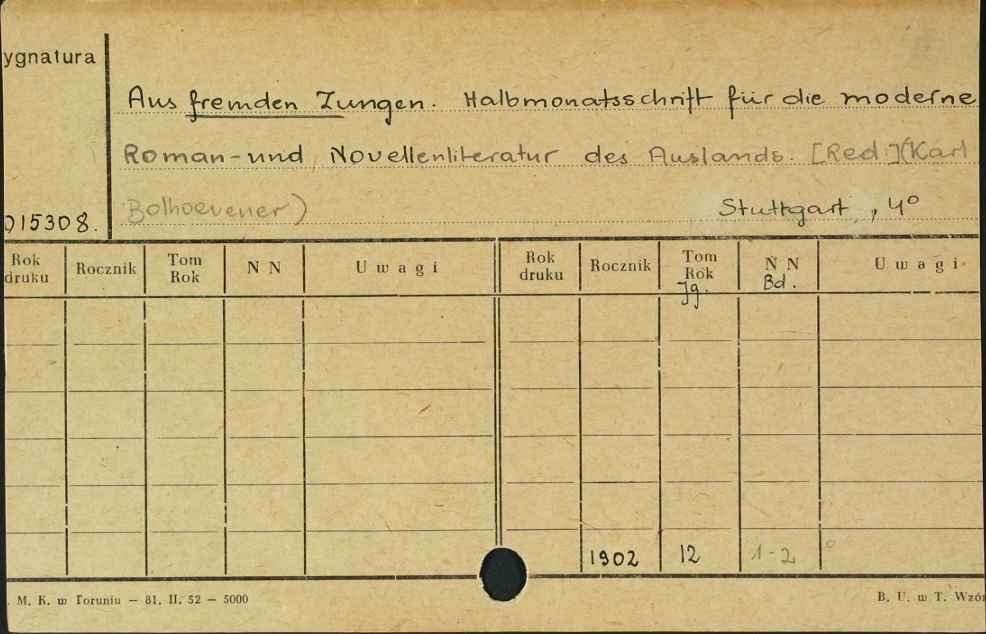 ygnatura
Aus fremden Zungen. Halbmonatsschrift für die moderne
Roman-und Novellenliteratur des Auslands. [Red.](Karl
Bolhoevener)
Stuttgart, 4°
015308.
Rok druku Rocznik Tom Rok N N Uwagi Rok druku Rocznik Tom Rok N N Uwagi
Jg. Bd.
1902 12 1-2
. M. K. w Toruniu — 81. II. 52 — 5000 B. U. w T. Wzór